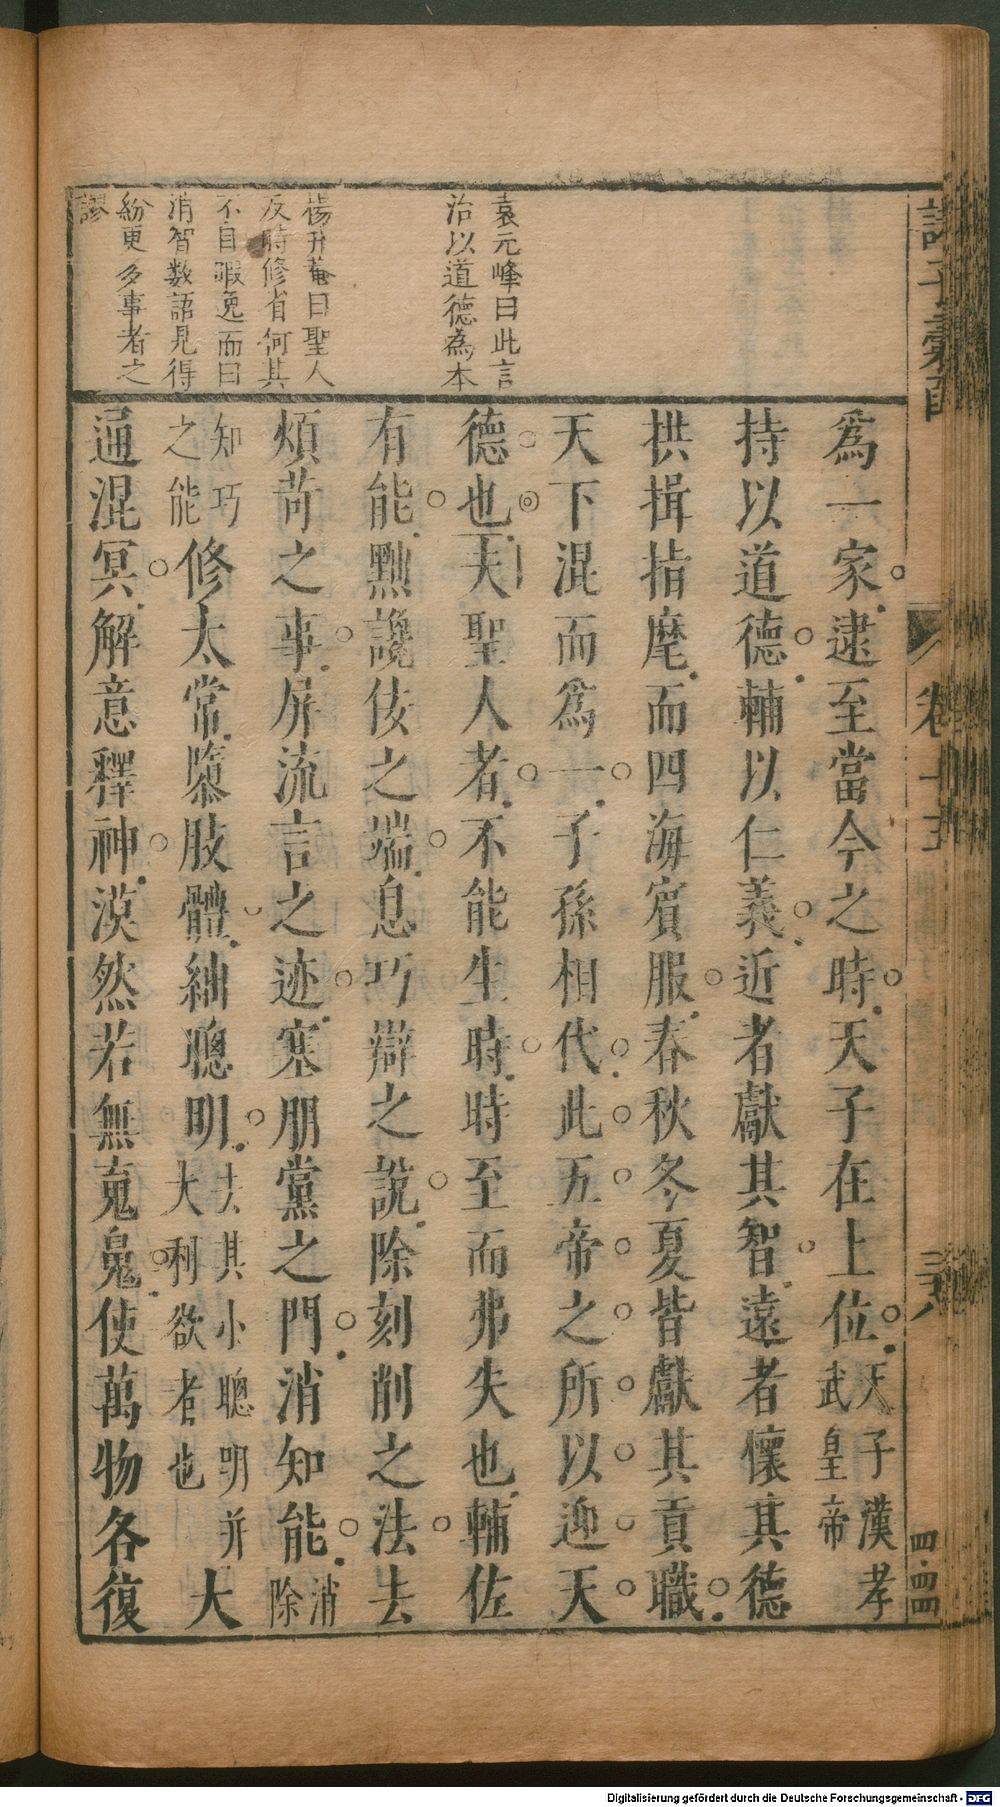 袁元峰曰此言
治以道德為本
楊升菴曰聖人
反時修省何其
不自暇逸而曰
消智数語見得
紛更多事者之
謬
為一家逮至當今之時天子在上位天子漢孝
武皇帝
持以道德輔以仁義近者獻其智遠者懷其德
拱揖指麾而四海賓服春秋冬夏皆獻其貢職
天下混而為一子孫相代此五帝之所以迎天
德也夫聖人者不能生時時至而弗失也輔佐
有能黜讒佞之端息巧辯之說除刻削之法去
煩苛之事屏流言之迹塞朋黨之門消知能消
除
知巧
之能修太常隳肢體紬聰明去其小聰明并
大利欲者也大
通混冥解意釋神漠然若無䰟鬼使萬物各復
卷十五
四四四
Digitalisierung gefördert durch die Deutsche Forschungsgemeinschaft - DFG